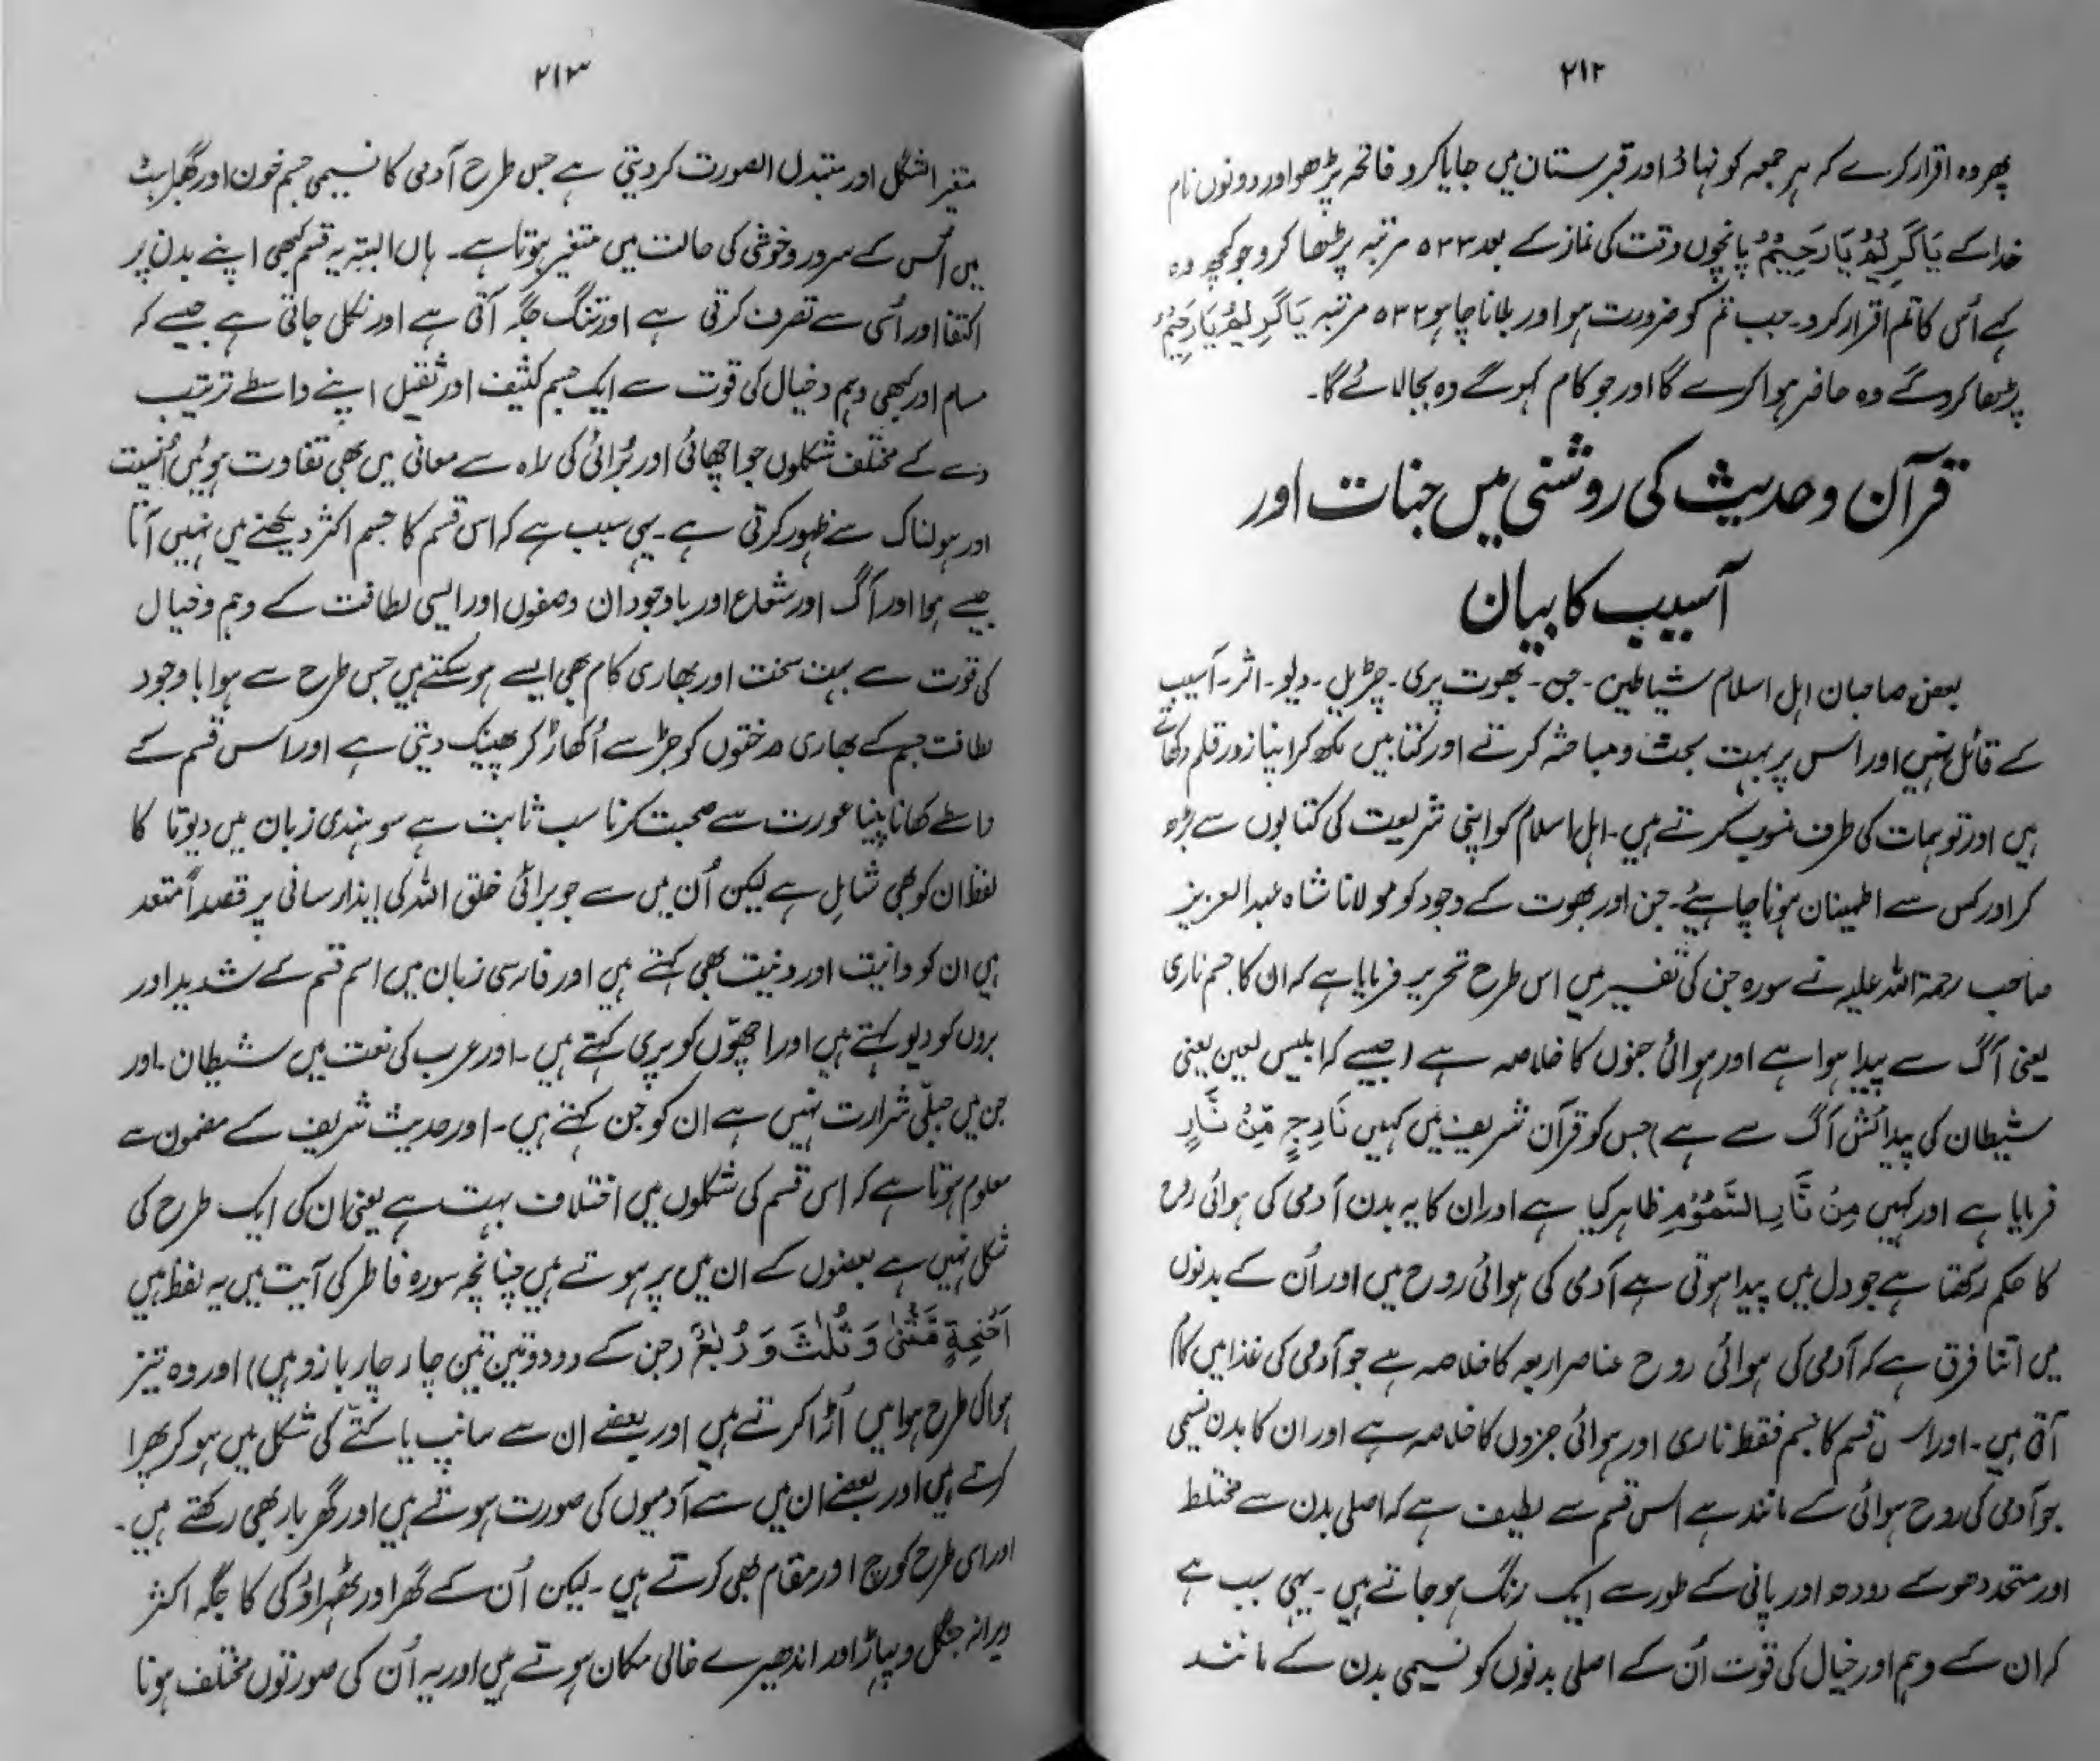 ۲۱۲
پھر وہ اقرار کرے کہ ہر جمعہ کو نہاؤ اور قبرستان میں جایا کرو فاتحہ پڑھو اور دونوں نام
خدا کے یَاکَرِیْمُ یَا رَحِیْمُ پانچوں وقت کی نماز کے بعد ۵۳۳ مرتبہ پڑھا کرو جو کچھ وہ
کہے اُس کا تم اقرار کرو۔ جب تم کو ضرورت ہو اور بلانا چاہو ۵۳۲ مرتبہ یَاکَرِیْمُ یَا رَحِیْمُ
پڑھا کرو گے وہ حاضر ہوا کرے گا اور جو کام کہو گے وہ بجا لائے گا۔
قرآن و حدیث کی روشنی میں جنات اور
آسیب کا بیان
بعض صاحبان اہل اسلام شیاطین۔ جن۔ بھوت پری۔ چڑیل۔ دیو۔ اثر۔ آسیب
کے قائل نہیں اور اس پر بہت بحث و مباحثہ کرتے اور کتابیں لکھ کر اپنا زور قلم دکھاتے
ہیں اور توہمات کی طرف منسوب کرتے ہیں۔ اہل اسلام کو اپنی شریعت کی کتابوں سے بڑھ
کر اور کس سے اطمینان ہونا چاہیئے۔ جن اور بھوت کے وجود کو مولانا شاہ عبدالعزیز
صاحب رحمۃ اللہ علیہ نے سورہ جن کی تفسیر میں اس طرح تحریر فرمایا ہے کہ ان کا جسم ناری
یعنی آگ سے پیدا ہوا ہے اور ہوائی جنوں کا خلاصہ ہے (جیسے کہ ابلیس لعین یعنی
شیطان کی پیدائش آگ سے ہے) جس کو قرآن شریف میں کہیں مَارِجٍ مِّنْ نَّارٍ
فرمایا ہے اور کہیں مِنْ نَّارِ السَّمُوْمِ ظاہر کیا ہے اور ان کا یہ بدن آدمی کی ہوائی روح
کا حکم رکھتا ہے جو دل میں پیدا ہوتی ہے آدمی کی ہوائی روح میں اور اُن کے بدنوں
میں اتنا فرق ہے کہ آدمی کی ہوائی روح عناصر اربعہ کا خلاصہ ہے جو آدمی کی غذا میں کام
آتی ہیں۔ اور اس قسم کا جسم فقط ناری اور ہوائی جزوں کا خلاصہ ہے اور ان کا بدن نسیمی
جو آدمی کی روح ہوائی کے مانند ہے اس قسم سے لطیف ہے کہ اصلی بدن سے مختلط
اور متحد ہو کے دودھ اور پانی کے طور سے ایک رنگ ہو جاتے ہیں۔ یہی سبب ہے
کہ ان کے وہم اور خیال کی قوت اُن کے اصلی بدنوں کو نسیمی بدن کے مانند
۲۱۳
متغیر الشکل اور متبدل الصورت کر دیتی ہے جس طرح آدمی کا نسیمی جسم خون اور گھبراہٹ
میں اُس کے سرور و خوشی کی حالت میں متغیر ہوتا ہے۔ ہاں البتہ یہ قسم کبھی اپنے بدن پر
اکتفا اور اُسی سے تصرف کرتی ہے اور تنگ جگہ آتی ہے اور نکل جاتی ہے جیسے کہ
مسام اور کبھی وہم و خیال کی قوت سے ایک جسم کثیف اور ثقیل اپنے واسطے ترتیب
دے کے مختلف شکلوں جو اچھائی اور بُرائی کی راہ سے معانی میں بھی تفاوت ہوئیں اُنسیت
اور ہولناک سے ظہور کرتی ہے۔ یہی سبب ہے کہ اس قسم کا جسم اکثر دیکھنے میں نہیں آتا
جیسے ہوا اور آگ اور شعاع اور باوجود ان وصفوں اور ایسی لطافت کے وہم و خیال
کی قوت سے بہت سخت اور بھاری کام بھی ایسے ہو سکتے ہیں جس طرح سے ہوا باوجود
لطافت جسم کے بھاری درختوں کو جڑ سے اُکھاڑ کر پھینک دیتی ہے اور اس قسم کے
واسطے کھانا پینا عورت سے صحبت کرنا سب ثابت ہے سو ہندی زبان میں دیوتا کا
لفظ ان کو بھی شامل ہے لیکن اُن میں سے جو برائی خلق اللہ کی ایذا رسانی پر قصداً متعد
ہیں ان کو دانیت اور دنیت بھی کہتے ہیں اور فارسی زبان میں اسم قسم کے شدید اور
بروں کو دیو کہتے ہیں اور اچھّوں کو پری کہتے ہیں۔ اور عرب کی لغت میں شیطان۔ اور
جن میں جبلّی شرارت نہیں ہے ان کو جن کہتے ہیں۔ اور حدیث شریف کے مضمون سے
معلوم ہوتا ہے کہ اس قسم کی شکلوں میں اختلاف بہت ہے یعنی ان کی ایک طرح کی
شکل نہیں ہے بعضوں کے ان میں پر ہوتے ہیں چنانچہ سورہ فاطر کی آیت میں یہ لفظ ہیں
اَجْنِحَةٍ مَّثْنٰی وَ ثُلٰثَ وَ رُبٰعَ (جن کے دو دو تین تین چار چار بازو ہیں) اور وہ تیز
ہوا کی طرح ہوا میں اُڑا کرتے ہیں اور بعضے ان سے سانپ یا کتّے کی شکل میں ہو کر پھرا
کرتے ہیں اور بعضے ان میں سے آدمیوں کی صورت ہوتے ہیں اور گھر بار بھی رکھتے ہیں۔
اور اسی طرح کوچ اور مقام بھی کرتے ہیں۔ لیکن اُن کے گھر اور ٹھہراؤ کی کا جگہ اکثر
ویرانہ جنگل و پہاڑ اور اندھیرے خالی مکان ہوتے ہیں اور یہ اُن کی صورتوں مختلف ہونا